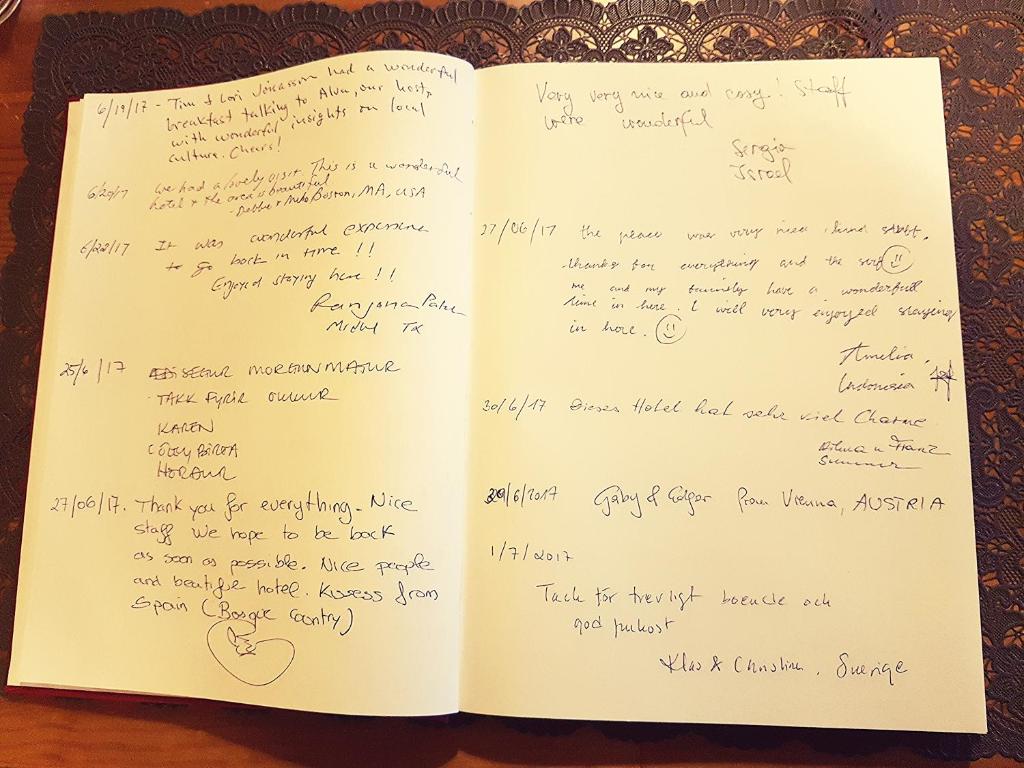 6/19/17 - Tim & Lori had a wonderful
breakfast talking to our host,
with wonderful insights on local
culture. Cheers!
6/20/17 We had a lovely visit. This is a wonderful
hotel & the area is beautiful
- Debbie & Boston, MA, USA
6/22/17 It was wonderful experience
to go back in time !!
Enjoyed staying here !!
Ranjana
TX
25/6/17
TAKK FYRIR OKKUR
KAREN
HÖRÐUR
27/06/17. Thank you for everything. Nice
staff We hope to be back
as soon as possible. Nice people
and beatiful hotel. Kisses from
Spain (Basque Country)
Very very nice and cosy! Staff
were wonderful
Sergio
Israel
27/06/17 the peace was very nice, kind
thanks for everything and the
me and my family have a wonderfull
time in here. I will very enjoyed staying
in here.
Amelia.
Indonesia
30/6/17 Dieses Hotel hat sehr viel Charme
Franz
29/6/2017 Gaby & Edgar from Vienna, AUSTRIA
1/7/2017
Tack för trevligt boende och
god frukost
Klas & Christina. Sverige